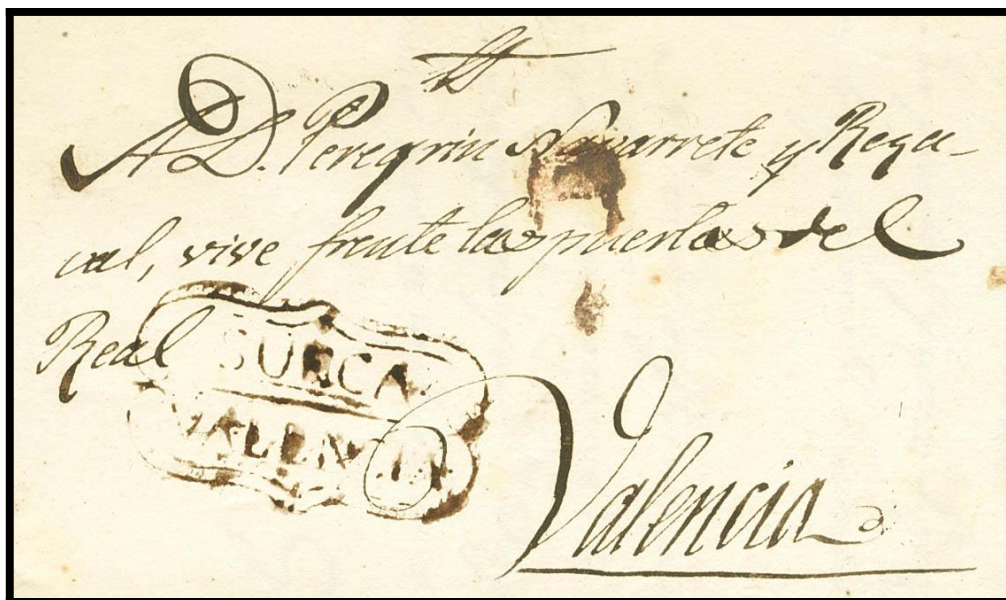 A D. Peregrin Navarrete y Regu-
ual, vive frente las puertas del
Real
SUECA
VALENCIA.
Valencia